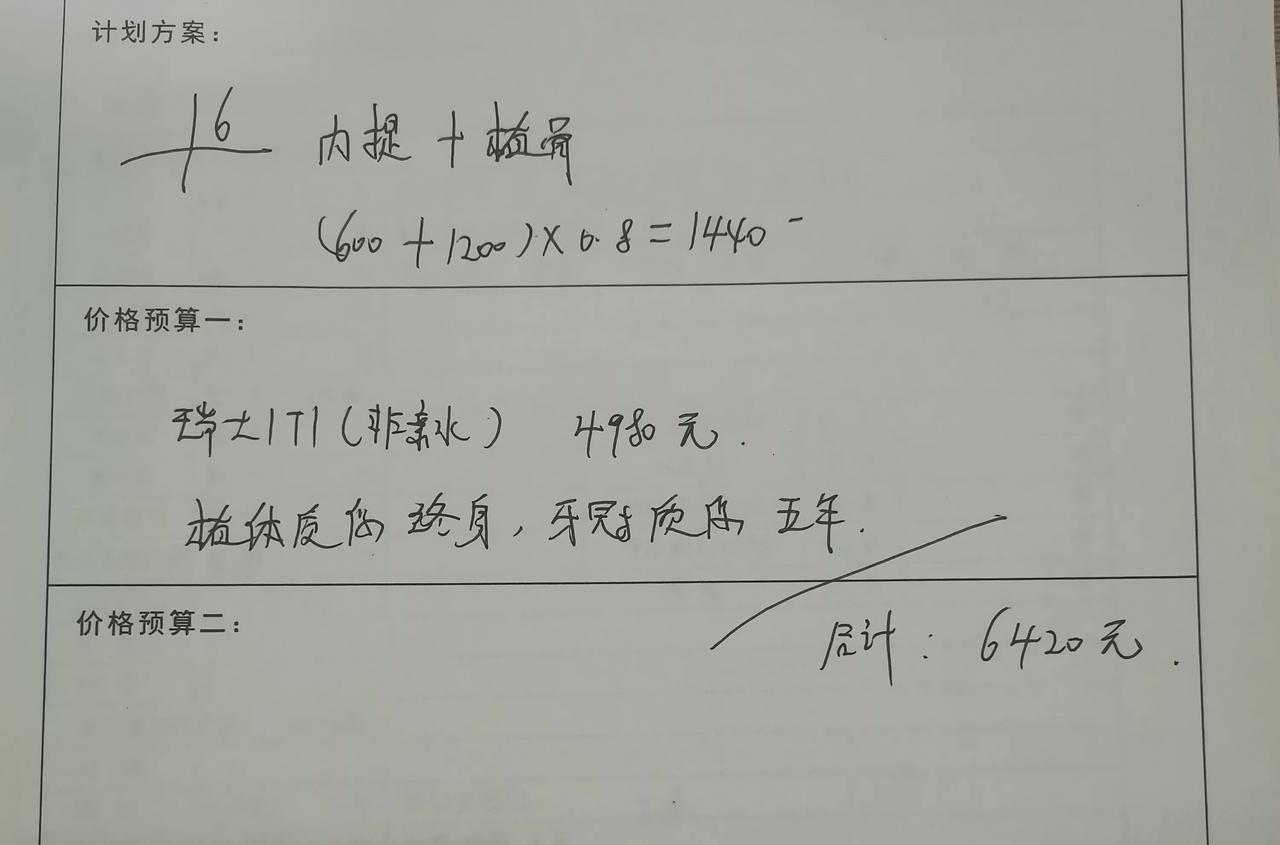 计划方案：
6 内提 + 植骨
(600 + 1200) × 0.8 = 1440 -
价格预算一：
瑞士ITI (非亲水) 4980元.
植体质保终身, 牙冠质保五年.
价格预算二：
合计: 6420元.